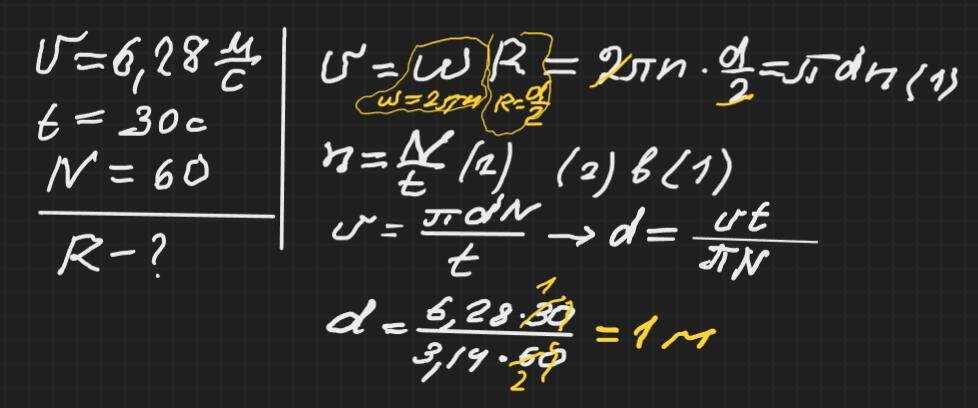 υ = 6,28 м/с
t = 30 с
N = 60
R - ?
υ = ω R = 2πn · d/2 = πdn (1)
ω = 2πn R = d/2
n = N/t (2) (2) в (1)
υ = πdN/t → d = υt/πN
d = 6,28 · 30/3,14 · 60 = 1 м
1
2